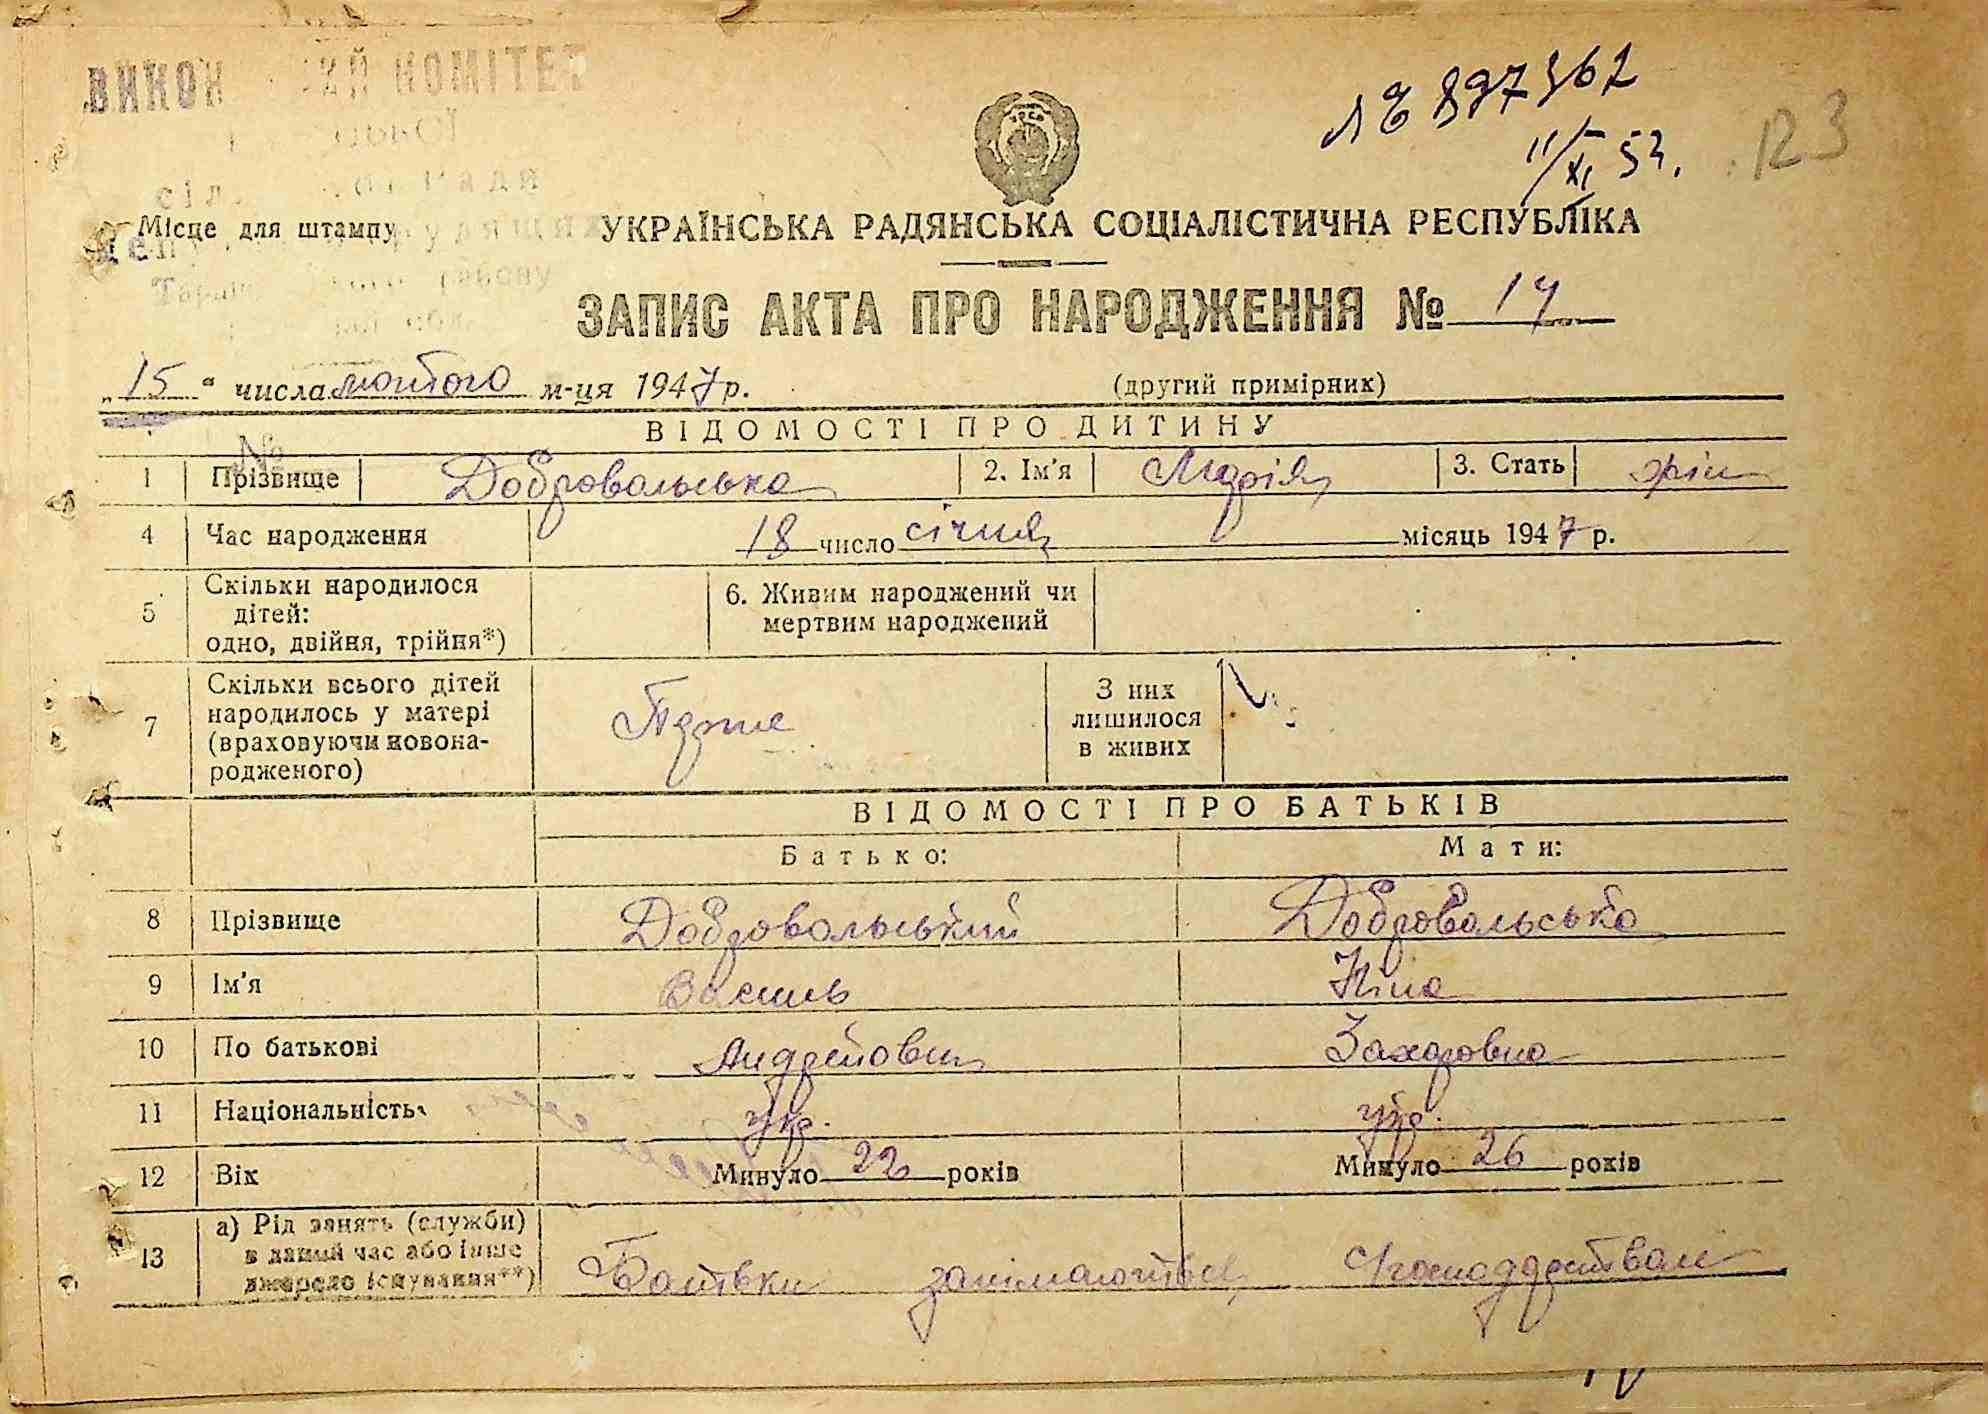 КОМІТЕТ
ЛБ 897362
11/XI 53.
123
Місце для штампу
УКРАЇНСЬКА РАДЯНСЬКА СОЦІАЛІСТИЧНА РЕСПУБЛІКА
ЗАПИС АКТА ПРО НАРОДЖЕННЯ № 17
„15“ числа лютого м-ця 1947 р. (другий примірник)
ВІДОМОСТІ ПРО ДИТИНУ
1 Прізвище Добровольська 2. Ім'я Марія 3. Стать жін
4 Час народження 18 число січня місяць 1947 р.
5 Скільки народилося дітей: одно, двійня, трійня*) 6. Живим народжений чи мертвим народжений
7 Скільки всього дітей народилось у матері (враховуючи новонародженого) Перше З них лишилося в живих
ВІДОМОСТІ ПРО БАТЬКІВ
Батько: Мати:
8 Прізвище Добровольський Добровольська
9 Ім'я Василь Ніна
10 По батькові Андрейович Захаровна
11 Національність укр. укр.
12 Вік Минуло 22 років Минуло 26 років
13 а) Рід занять (служби) в даний час або інше джерело існування**) Батьки занімаються господарством